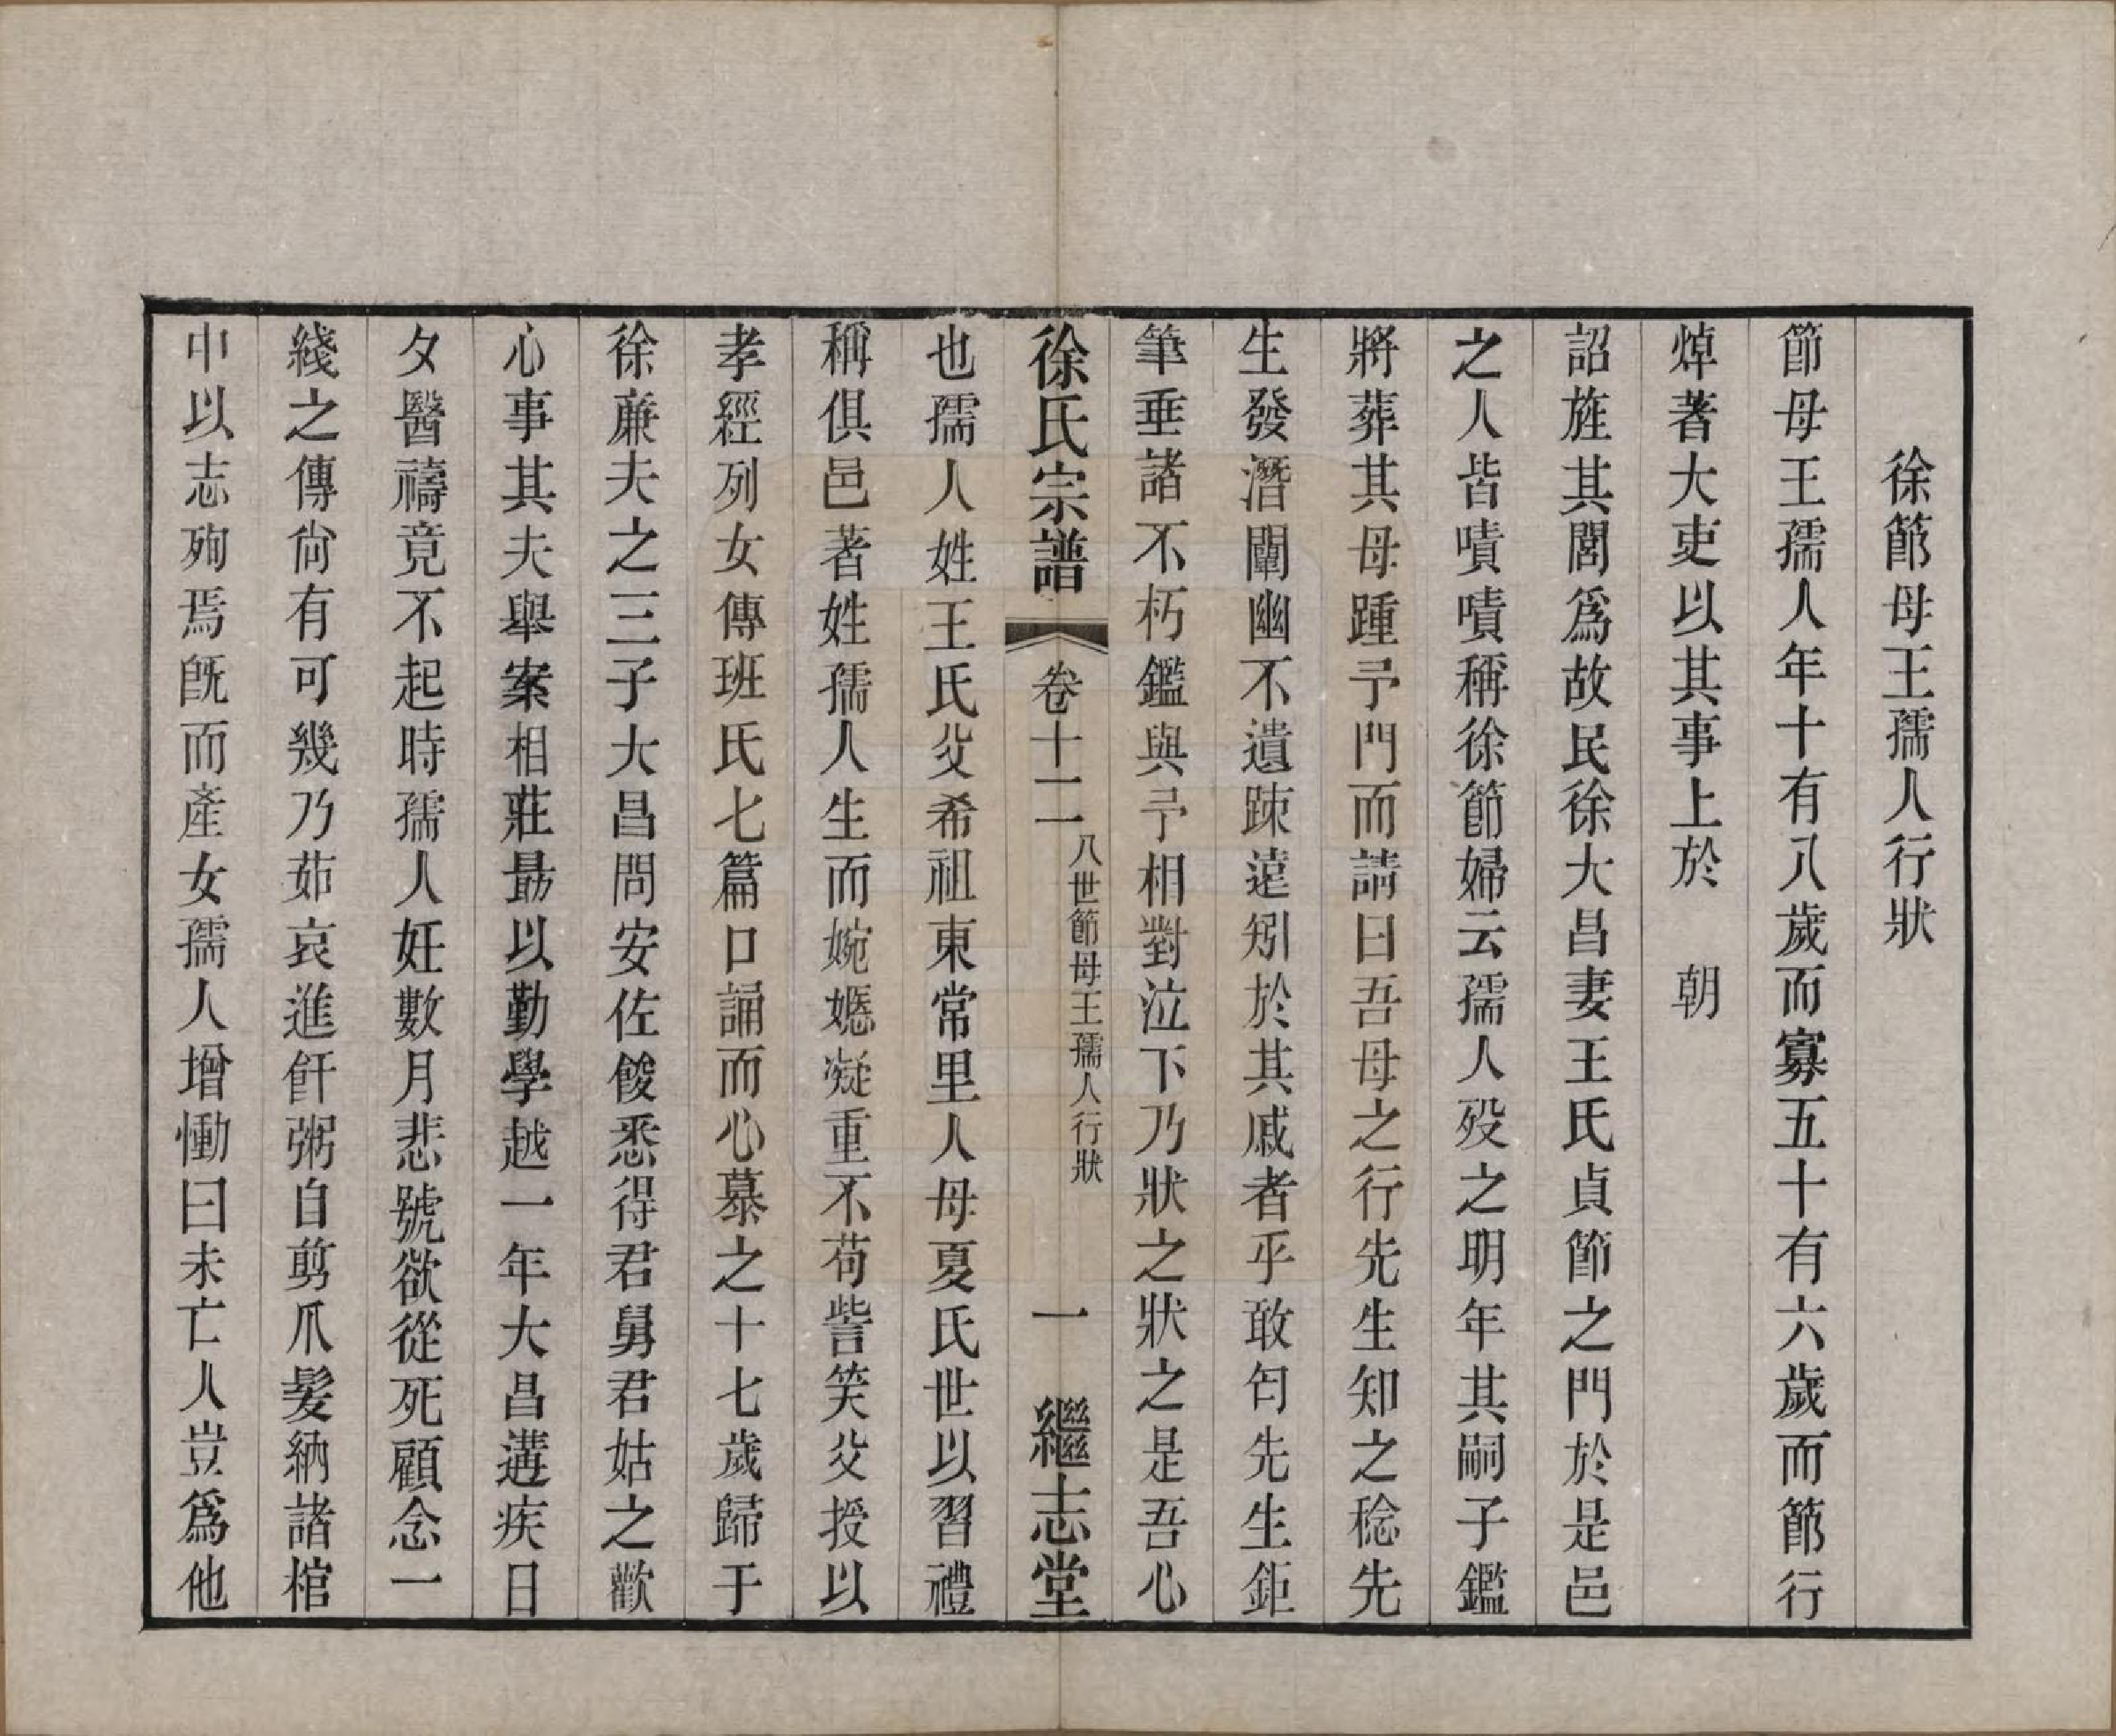 徐節母王孺人行狀
節母王孺人年十有八歲而寡五十有六歲而節行
焯著大吏以其事上於　朝
詔旌其閭爲故民徐大昌妻王氏貞節之門於是邑
之人皆嘖嘖稱徐節婦云孺人歿之明年其嗣子鑑
將葬其母踵予門而請曰吾母之行先生知之稔先
生發潛闡幽不遺踈遠矧於其戚者乎敢匄先生鉅
筆垂諸不朽鑑與予相對泣下乃狀之狀之是吾心
徐氏宗譜　卷十二　八世節母王孺人行狀　一　繼志堂
也孺人姓王氏父希祖東常里人母夏氏世以習禮
稱俱邑著姓孺人生而婉嫕凝重不苟訾笑父授以
孝經列女傳班氏七篇口誦而心慕之十七歲歸于
徐亷夫之三子大昌問安佐餕悉得君舅君姑之歡
心事其夫舉案相莊勗以勤學越一年大昌遘疾日
夕醫禱竟不起時孺人妊數月悲號欲從死顧念一
綫之傳尙有可幾乃茹哀進飦粥自剪爪髮納諸棺
中以志殉焉旣而產女孺人增慟曰未亡人豈爲他